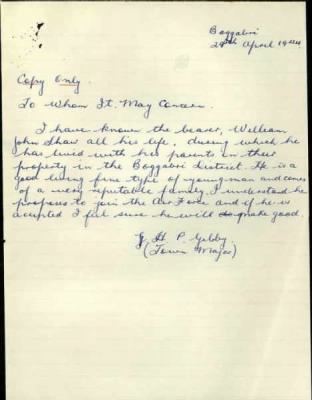 Boggabri
29th April 1944
Copy Only.
To Whom It. May Concern.
I have known the bearer, William
John Shaw all his life, during which he
has lived with his parents in their
property in the Boggabri District. He is a
good living fine type of young man and comes
of a very reputable family. I understand he
proposes to join the Air Force and if he is
accepted I feel sure he will make good.
H P. Gebby.
(Town Major)